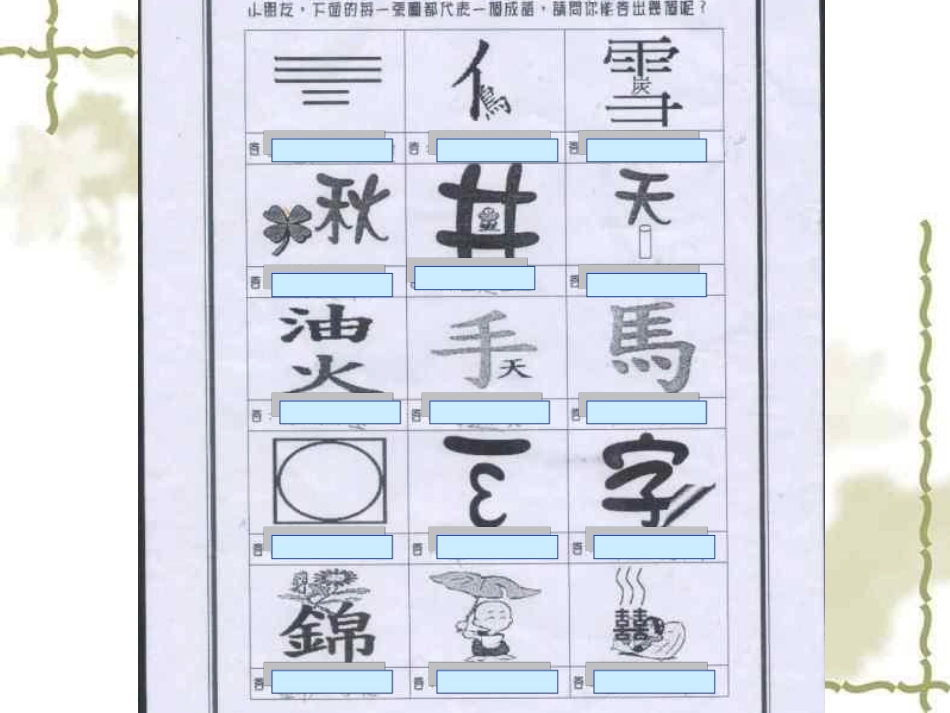 小朋友，下面的每一張圖都代表一個成語，請問你能答出幾個呢？
亻鳥 雪炭
答 答 答
秋 井 天
答 答
油 手 馬
火 天
答 答 答
字
答 答 答
錦 囍
答 答 答